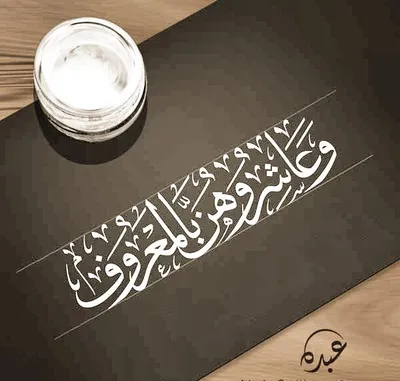 وَعَاشِرُوهُنَّ بِالْمَعْرُوفِ
عبده